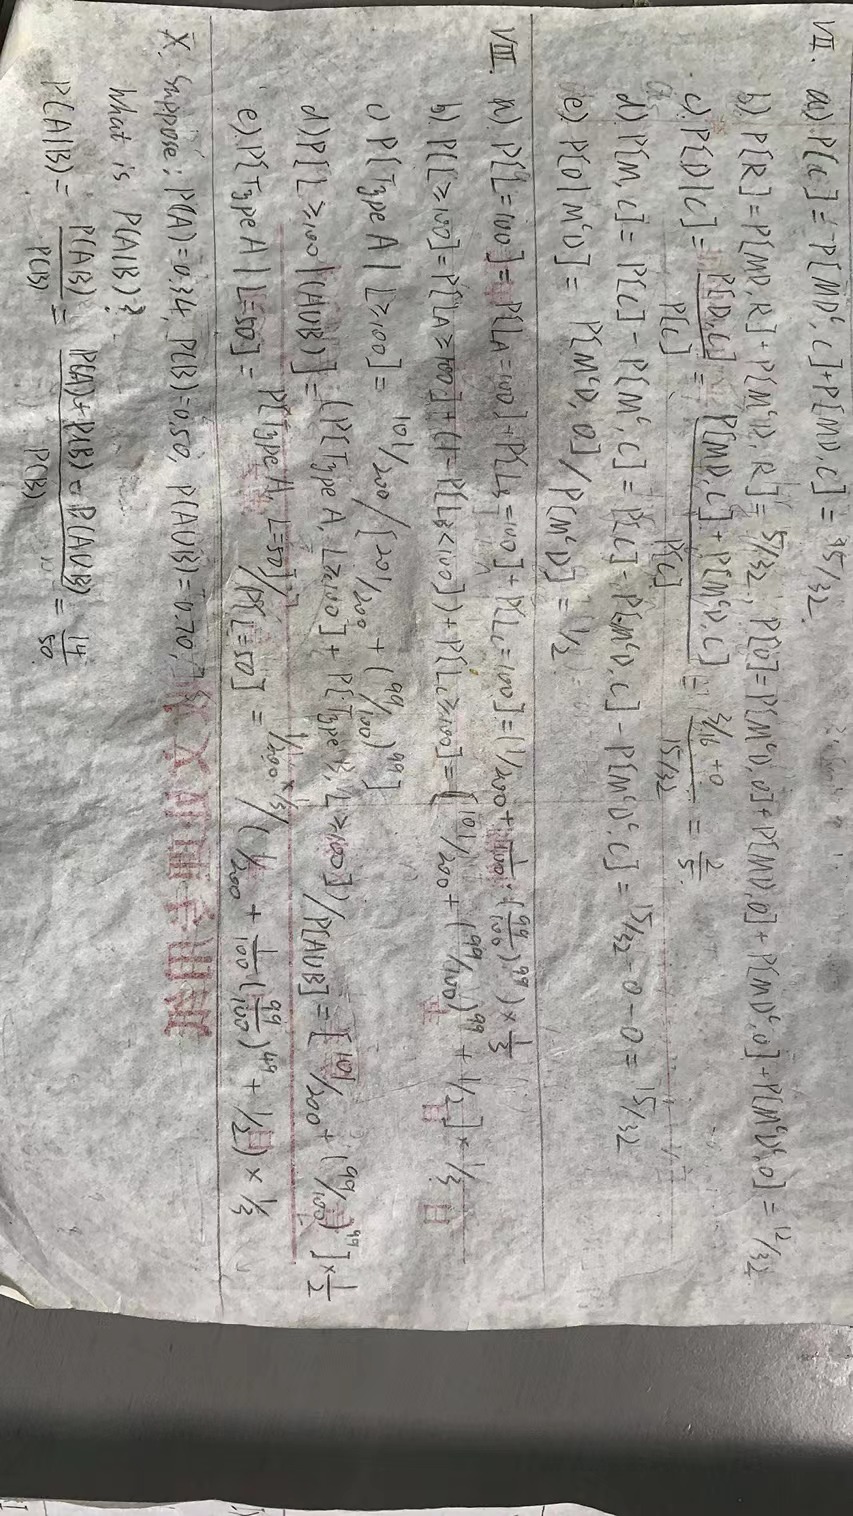 VII. a) P[C] = P[MDᶜ, C] + P[MD, C] = 15/32.
b) P[R] = P[MD, R] + P[MᶜD, R] = 5/32, P[O] = P[MᶜD, O] + P[MD, O] + P[MDᶜ, O] + P[MᶜDᶜ, O] = 12/32
c) P[D|C] = P[D, C]/P[C] = (P[MD, C] + P[MᶜD, C])/P[C] = (3/16 + 0)/(15/32) = 2/5.
d) P[M, C] = P[C] - P[Mᶜ, C] = P[C] - P[MᶜD, C] - P[MᶜDᶜ, C] = 15/32 - 0 - 0 = 15/32
e) P[O|MᶜD] = P[MᶜD, O]/P[MᶜD] = 1/2.
VIII. a) P[L=100] = P[L_A=100] + P[L_B=100] + P[L_C=100] = (1/200 + 1/100 · (99/100)⁹⁹) × 1/3
b) P[L≥100] = P[L_A≥100] + (1 - P[L_B<100]) + P[L_C≥100] = [101/200 + (99/100)⁹⁹ + 1/2] × 1/3
c) P[Type A | L≥100] = 101/200 / [201/200 + (99/100)⁹⁹]
d) P[L≥100 | (A∪B)] = (P[Type A, L≥100] + P[Type B, L≥100]) / P[A∪B] = [101/200 + (99/100)⁹⁹] × 1/2
e) P[Type A | L=50] = P[Type A, L=50] / P[L=50] = 1/200 × 1/3 / (1/200 + 1/100 (99/100)⁴⁹ + 1/2) × 1/3
X. Suppose: P(A)=0.34, P(B)=0.50, P(A∪B)=0.70,
What is P(A|B)?
P(A|B) = P(AB)/P(B) = (P(A) + P(B) - P(A∪B))/P(B) = 14/50